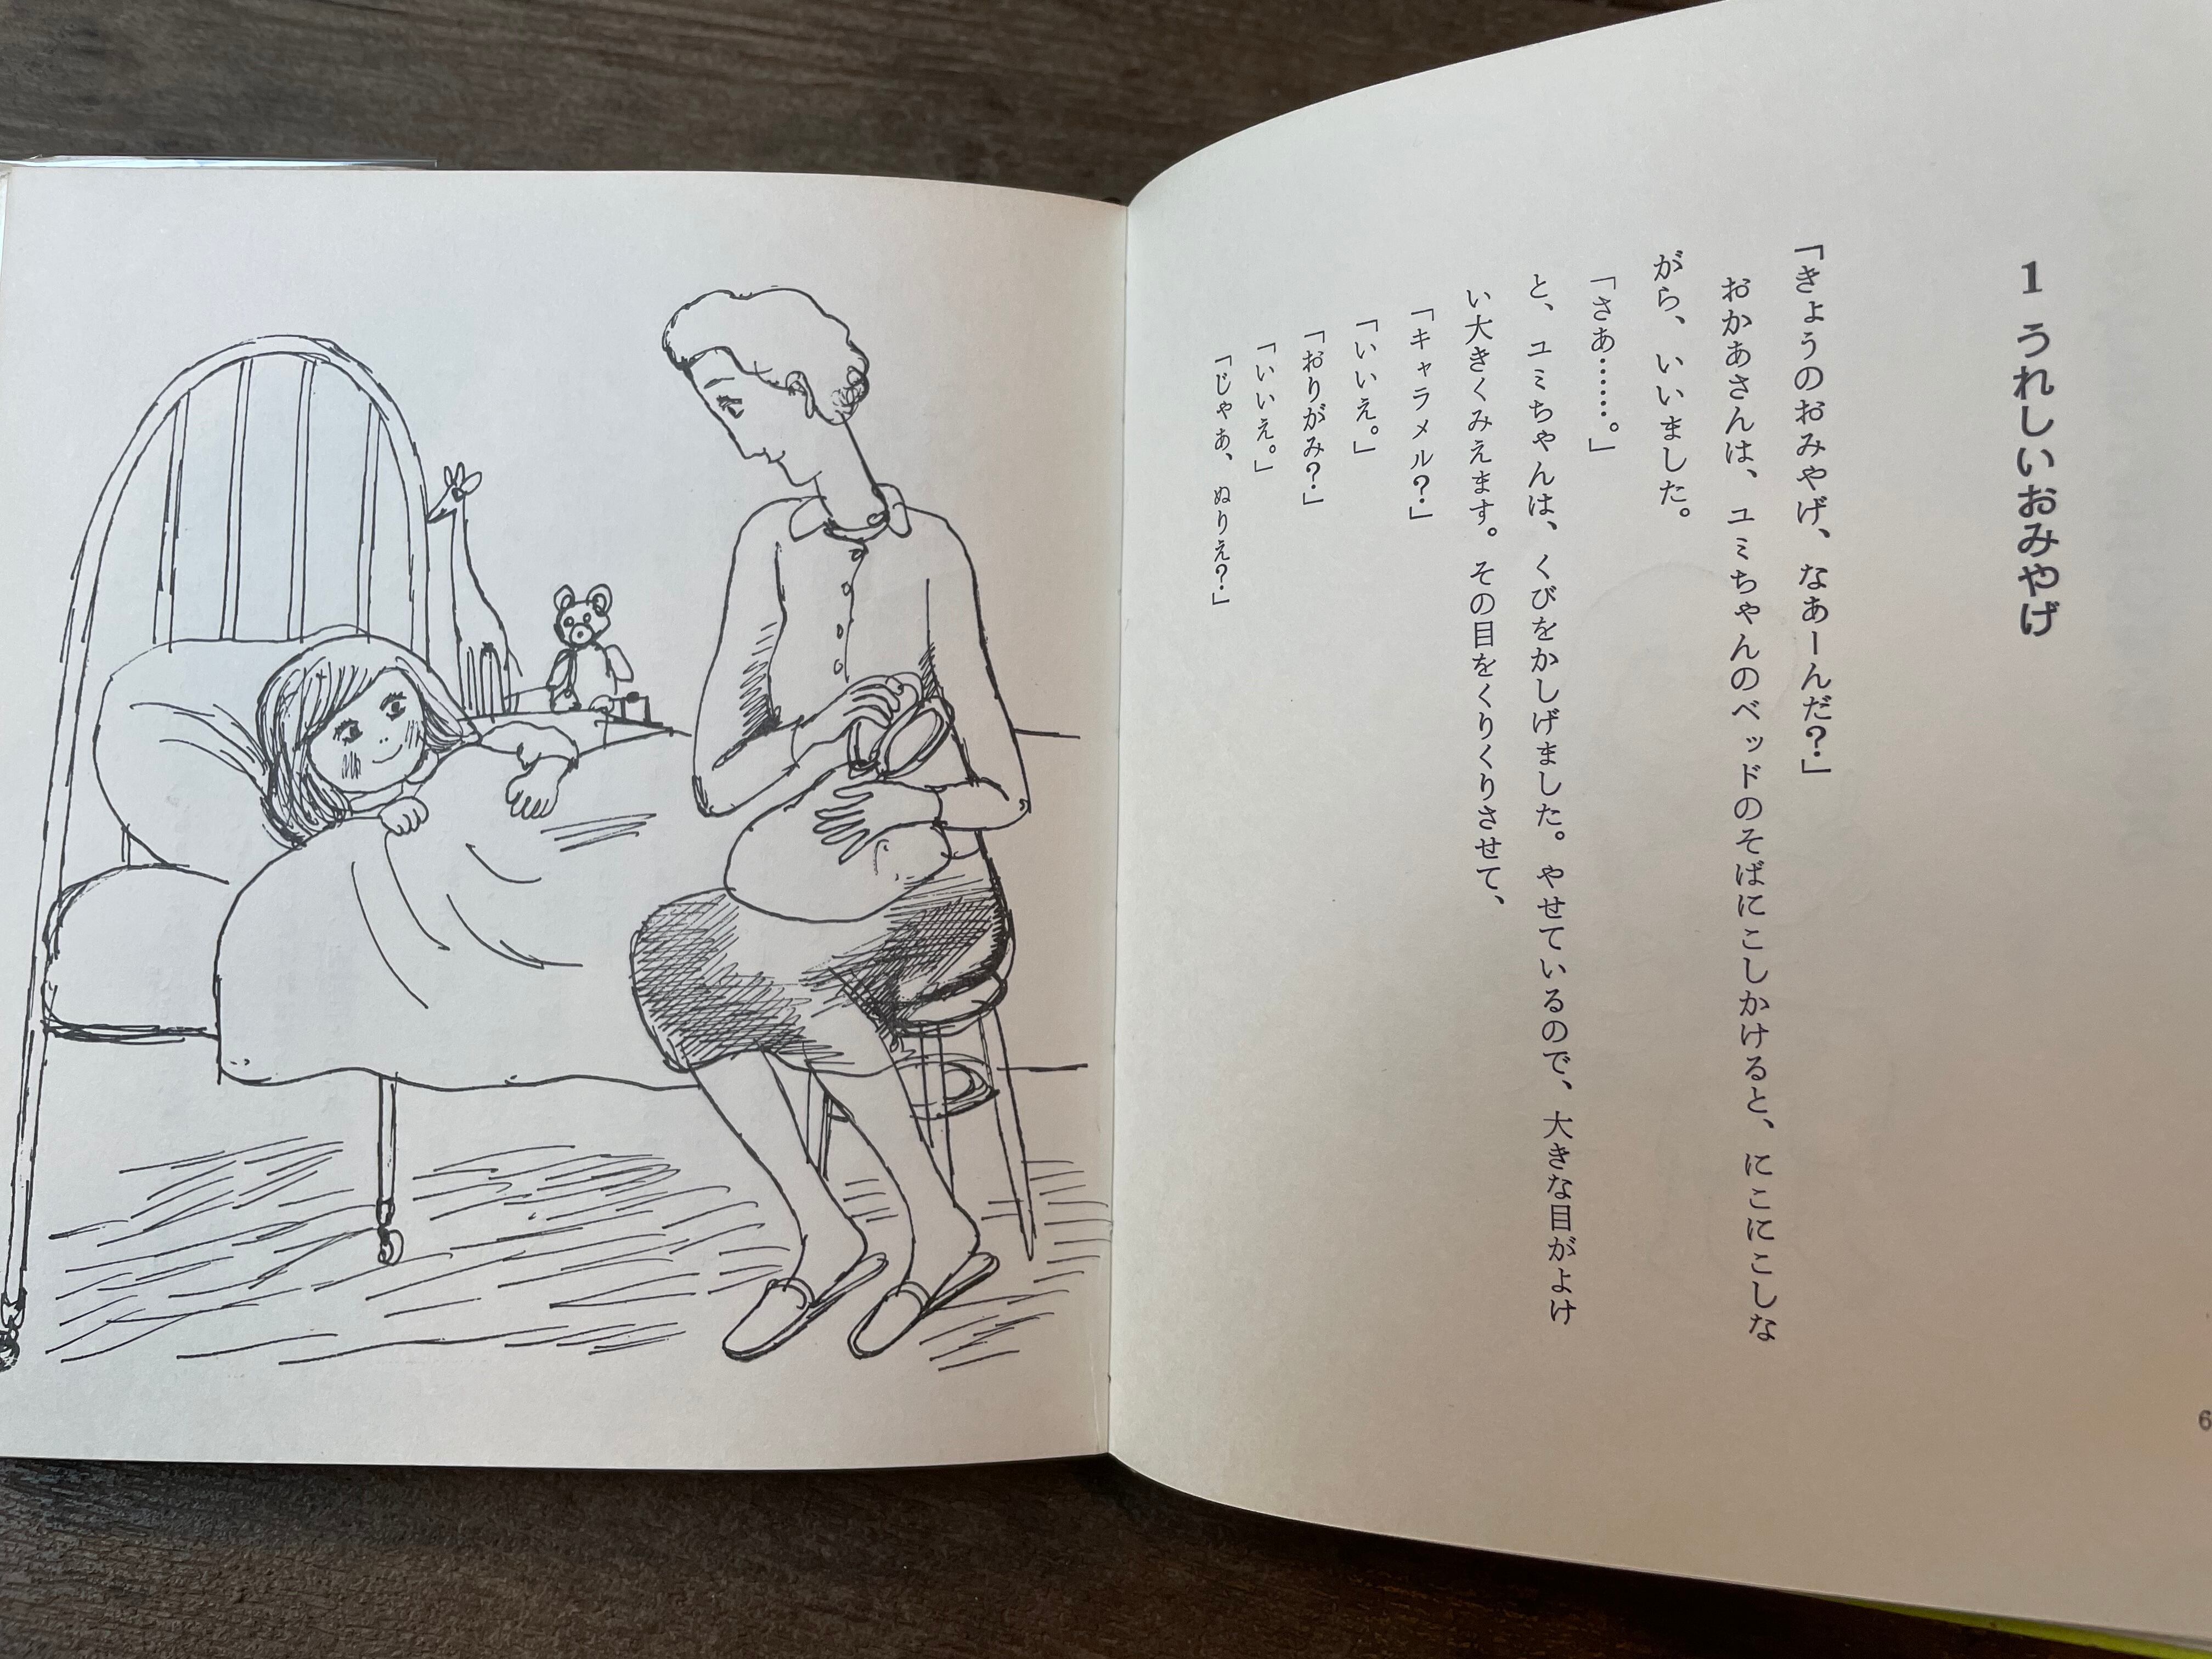 1 うれしいおみやげ
「きょうのおみやげ、なあーんだ？」
おかあさんは、ユミちゃんのベッドのそばにこしかけると、にこにこしな
がら、いいました。
「さあ……。」
と、ユミちゃんは、くびをかしげました。やせているので、大きな目がよけ
い大きくみえます。その目をくりくりさせて、
「キャラメル？」
「いいえ。」
「おりがみ？」
「いいえ。」
「じゃあ、ぬりえ？」
6